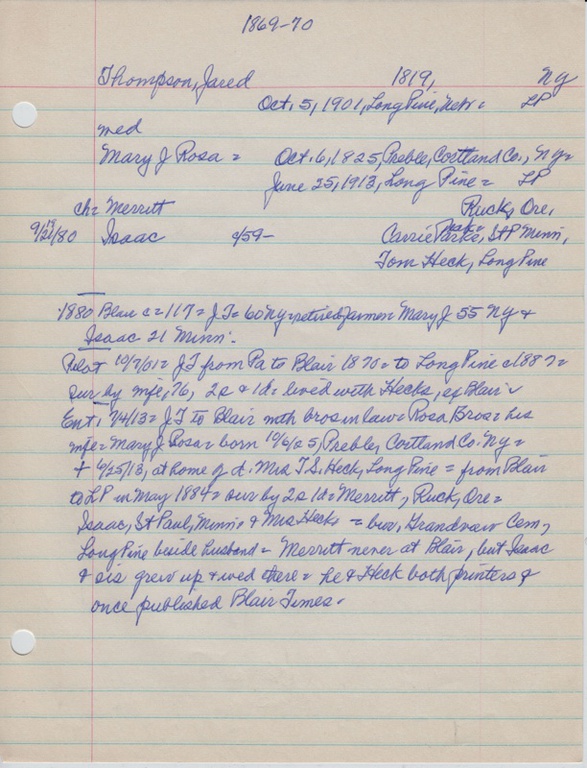 1869-70
Thompson, Jared 1819, NY
Oct. 5, 1901, Long Pine, Neb = LP
wed
Mary J Rosa = Oct. 6, 1825, Preble, Cortland Co., NY=
June 25, 1913, Long Pine = LP
ch = Merritt Ruck, Ore,
9/21/80 Isaac c/59- Carrie Parks, St P Minn,
Tom Heck, Long Pine
1880 Blair c = 117 = JT = 60 NY = retired farmer = Mary J 55 NY &
Isaac 21 Minn.
Pilot 10/7/01 = JT from Pa to Blair 1870 = to Long Pine c1887 =
sur by wife, 76, 2s & 1d = lived with Hecks, of Blair
Ent. 7/4/13 = JT to Blair with bros in law = Rosa Bros = his
wife = Mary J Rosa = born 10/6/25, Preble, Cortland Co. NY =
+ 6/25/13, at home of d. Mrs T.S. Heck, Long Pine = from Blair
to LP in May 1884 = sur by 2s 1d = Merritt, Ruck, Ore =
Isaac, St Paul, Minn & Mrs Hecks = bur, Grandview Cem,
Long Pine beside husband = Merritt never at Blair, but Isaac
& sis grew up & wed there = he & Heck both printers &
once published Blair Times.